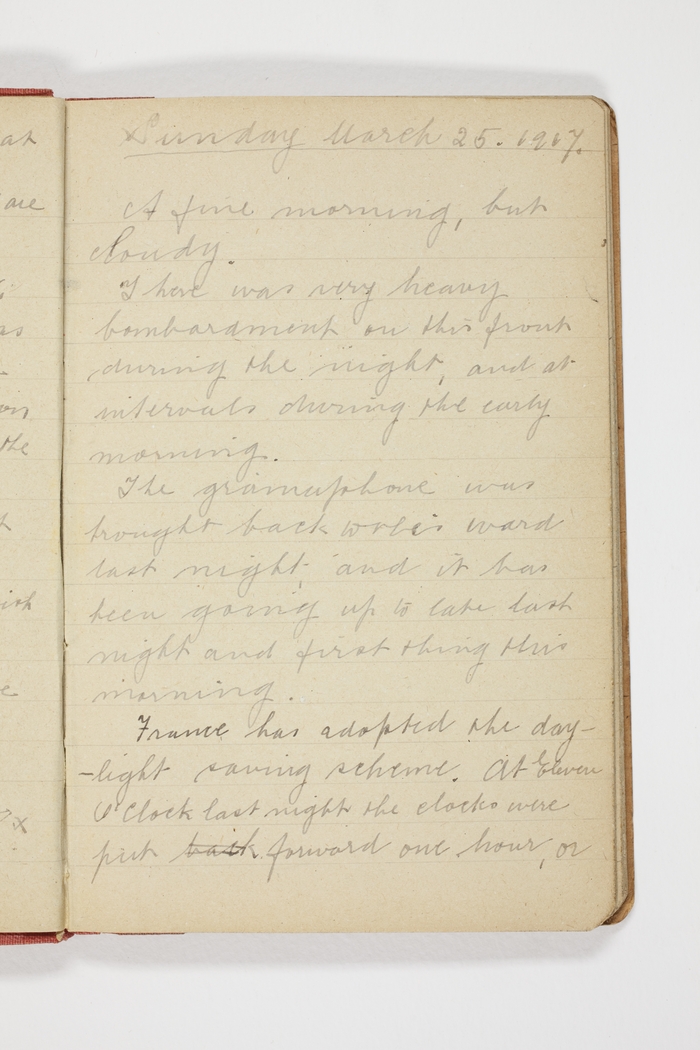 at
are
as
on
the
t
ish
e
Sunday March 25. 1917.
A fine morning, but
cloudy.
There was very heavy
bombardment on this front
during the night, and at
intervals during the early
morning.
The gramaphone was
brought back to this ward
last night, and it has
been going up to late last
night and first thing this
morning.
France has adopted the day-
-light saving scheme. At Eleven
O'Clock last night the clocks were
put back forward one hour, or